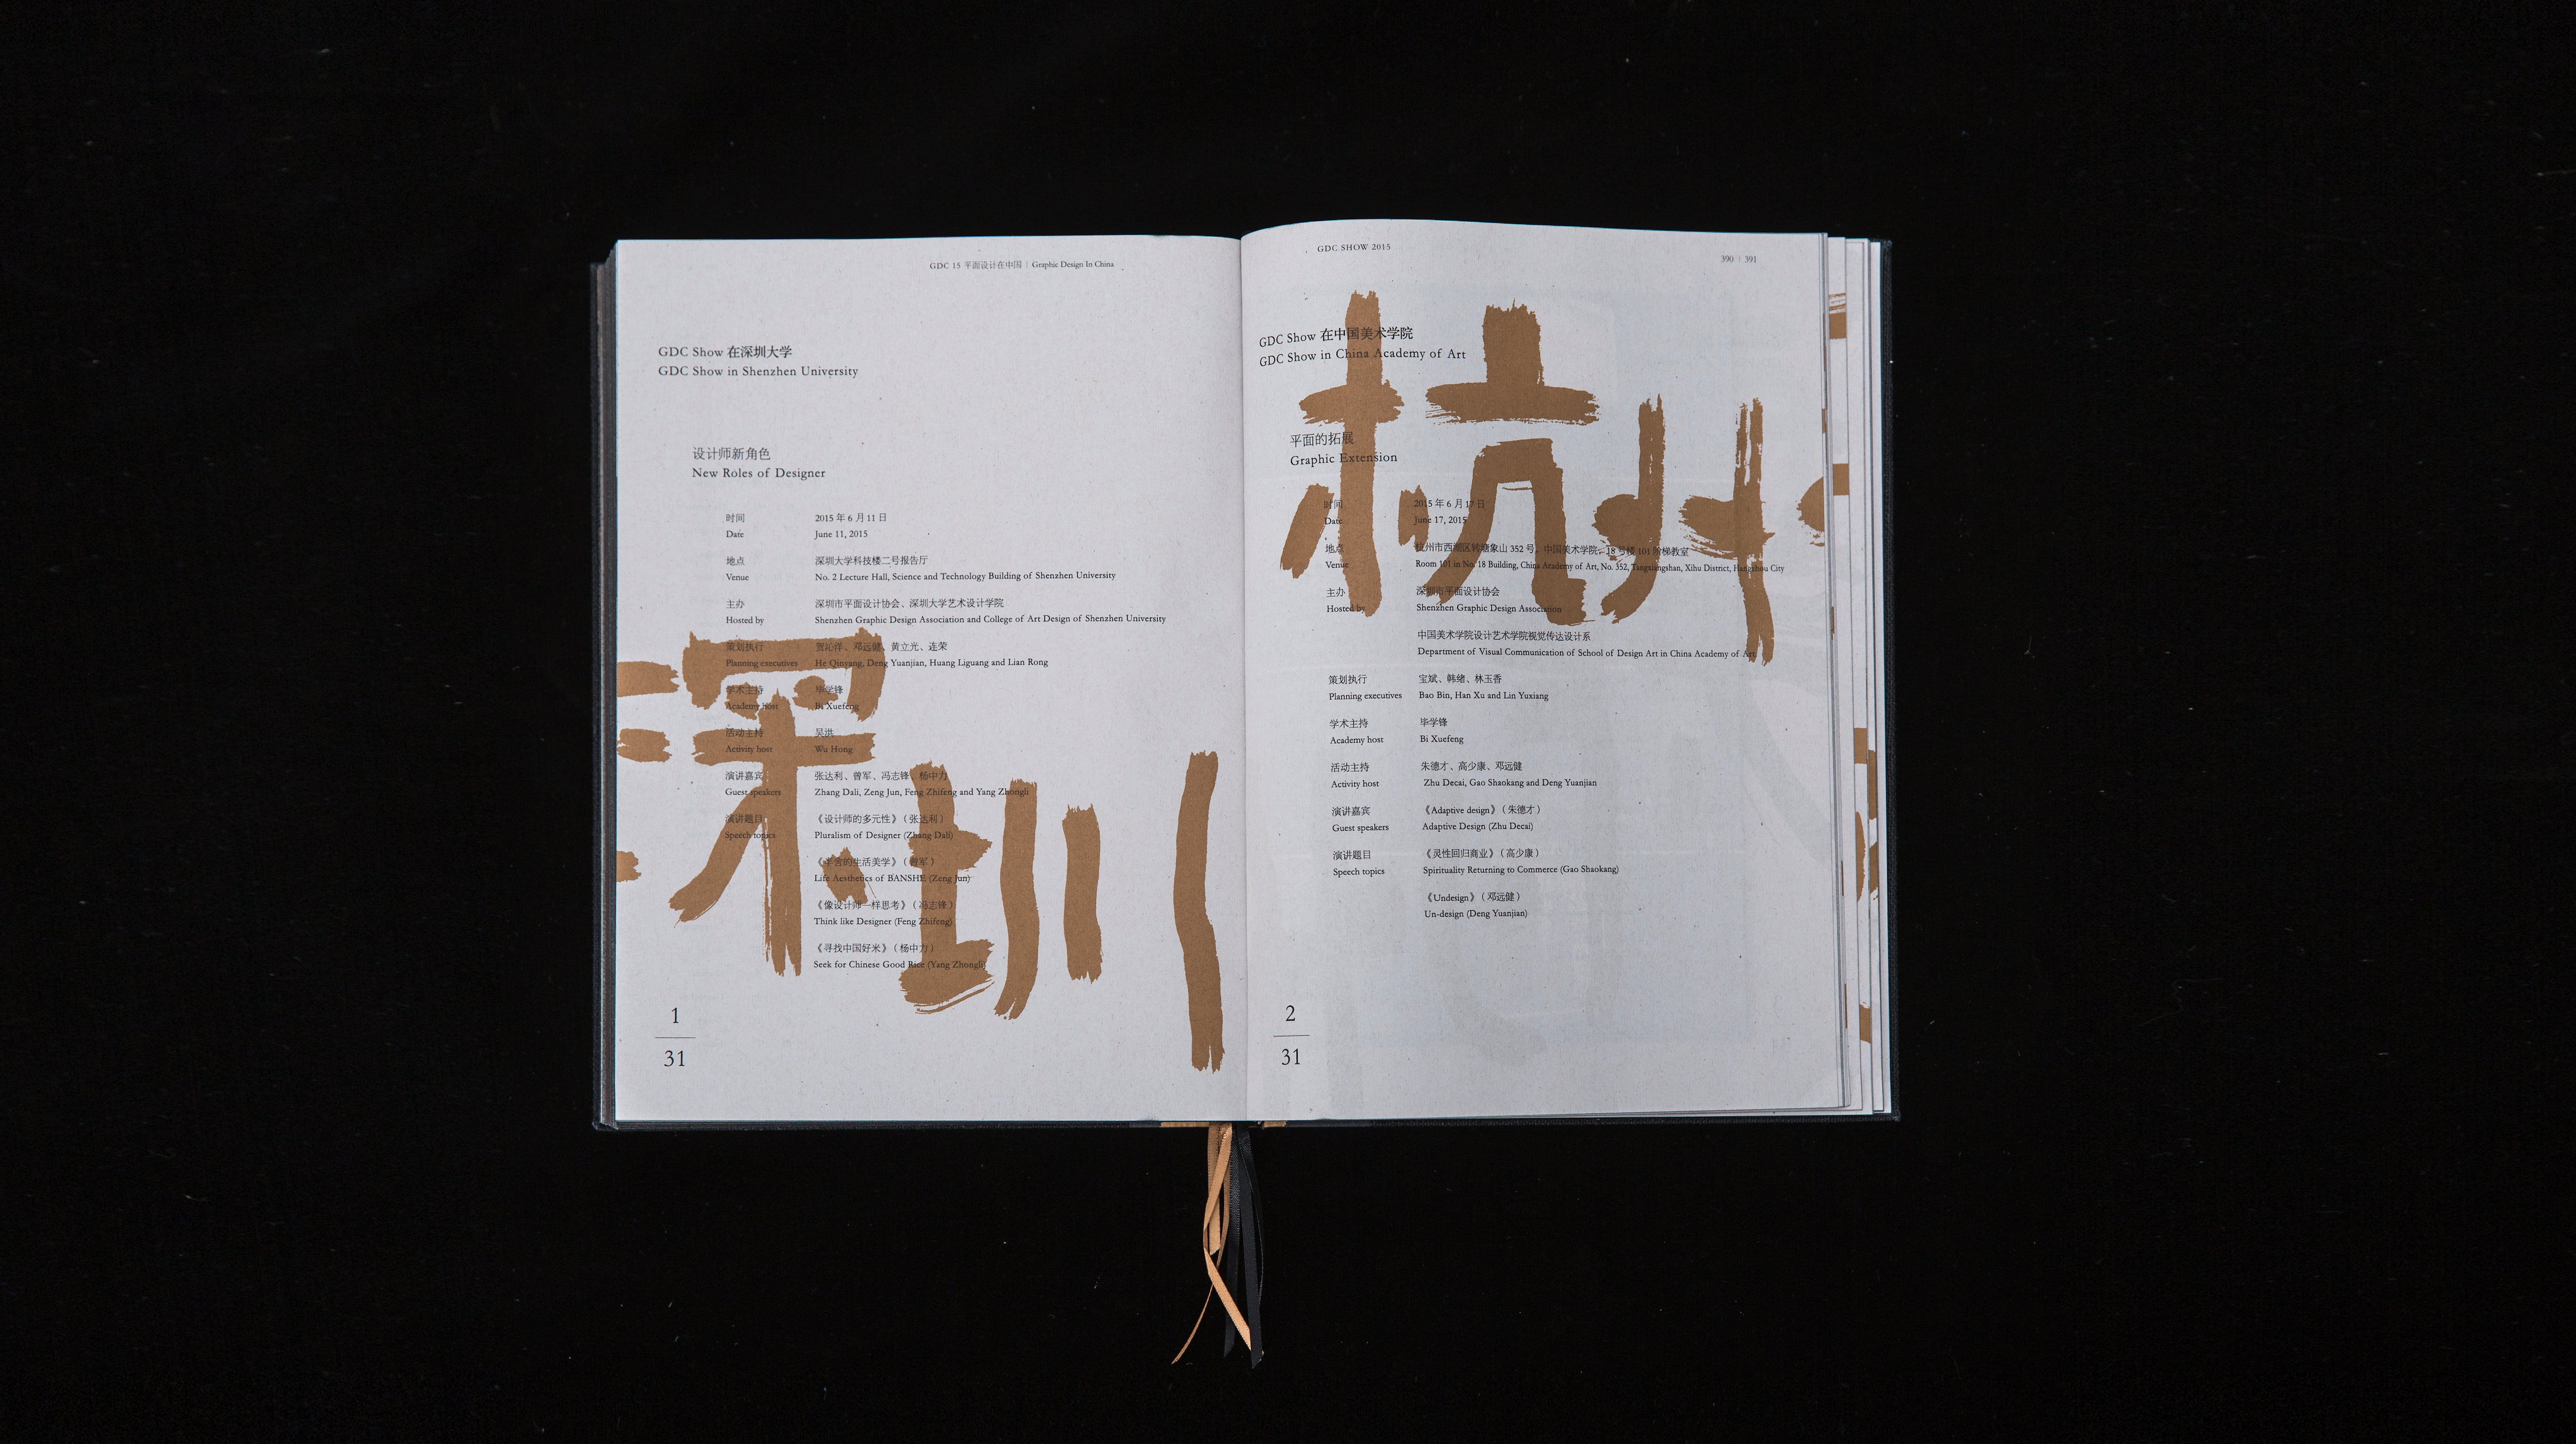 GDC 15 平面设计在中国 | Graphic Design In China
GDC Show 在深圳大学
GDC Show in Shenzhen University
设计师新角色
New Roles of Designer
时间 2015 年 6 月 11 日
Date June 11, 2015
地点 深圳大学科技楼二号报告厅
Venue No. 2 Lecture Hall, Science and Technology Building of Shenzhen University
主办 深圳市平面设计协会、深圳大学艺术设计学院
Hosted by Shenzhen Graphic Design Association and College of Art Design of Shenzhen University
策划执行 贺沁洋、邓远健、黄立光、连荣
Planning executives He Qinyang, Deng Yuanjian, Huang Liguang and Lian Rong
学术主持 毕学锋
Academy host Bi Xuefeng
活动主持 吴洪
Activity host Wu Hong
演讲嘉宾 张达利、曾军、冯志锋、杨中力
Guest speakers Zhang Dali, Zeng Jun, Feng Zhifeng and Yang Zhongli
演讲题目 《设计师的多元性》（张达利）
Speech topics Pluralism of Designer (Zhang Dali)
《半舍的生活美学》（曾军）
Life Aesthetics of BANSHE (Zeng Jun)
《像设计师一样思考》（冯志锋）
Think like Designer (Feng Zhifeng)
《寻找中国好米》（杨中力）
Seek for Chinese Good Rice (Yang Zhongli)
深圳
1
31
GDC SHOW 2015
390 | 391
GDC Show 在中国美术学院
GDC Show in China Academy of Art
杭州
平面的拓展
Graphic Extension
时间 2015 年 6 月 17 日
Date June 17, 2015
地点 杭州市西湖区转塘象山 352 号，中国美术学院，18 号楼 101 阶梯教室
Venue Room 101 in No. 18 Building, China Academy of Art, No. 352, Tangxiangshan, Xihu District, Hangzhou City
主办 深圳市平面设计协会
Hosted by Shenzhen Graphic Design Association
中国美术学院设计艺术学院视觉传达设计系
Department of Visual Communication of School of Design Art in China Academy of Art
策划执行 宝斌、韩绪、林玉香
Planning executives Bao Bin, Han Xu and Lin Yuxiang
学术主持 毕学锋
Academy host Bi Xuefeng
活动主持 朱德才、高少康、邓远健
Activity host Zhu Decai, Gao Shaokang and Deng Yuanjian
演讲嘉宾 《Adaptive design》（朱德才）
Guest speakers Adaptive Design (Zhu Decai)
演讲题目 《灵性回归商业》（高少康）
Speech topics Spirituality Returning to Commerce (Gao Shaokang)
《Undesign》（邓远健）
Un-design (Deng Yuanjian)
2
31